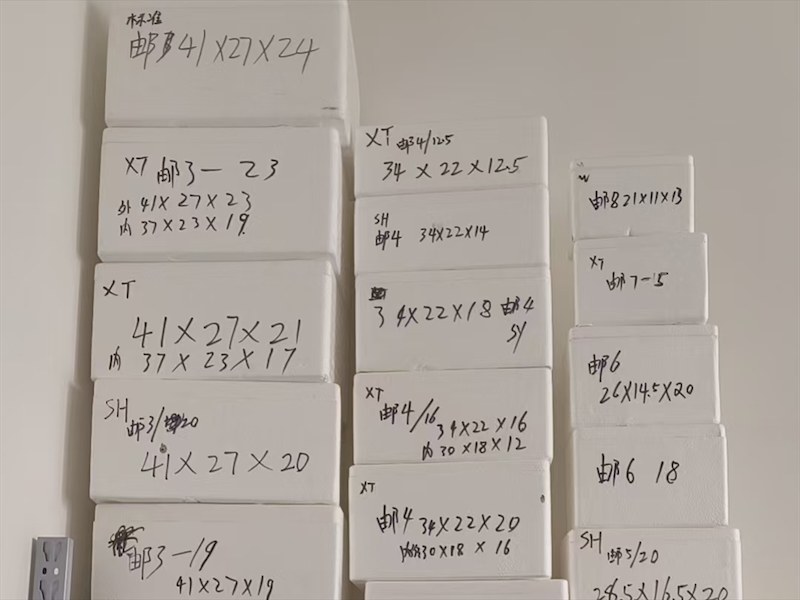 标准
邮3 41×27×24
XT 邮3一 23
外 41×27×23
内 37×23×19
XT
41×27×21
内 37×23×17
SH
邮3/20
41×27×20
邮3一19
41×27×19
XT 邮4/12.5
34×22×12.5
SH
邮4 34×22×14
34×22×18 邮4
SY
XT
邮4/16 34×22×16
内 30×18×12
XT
邮4 34×22×20
内 30×18×16
邮8 21×11×13
XT
邮7-15
邮6
26×14.5×20
邮6 18
SH
邮5/20
28.5×16.5×20